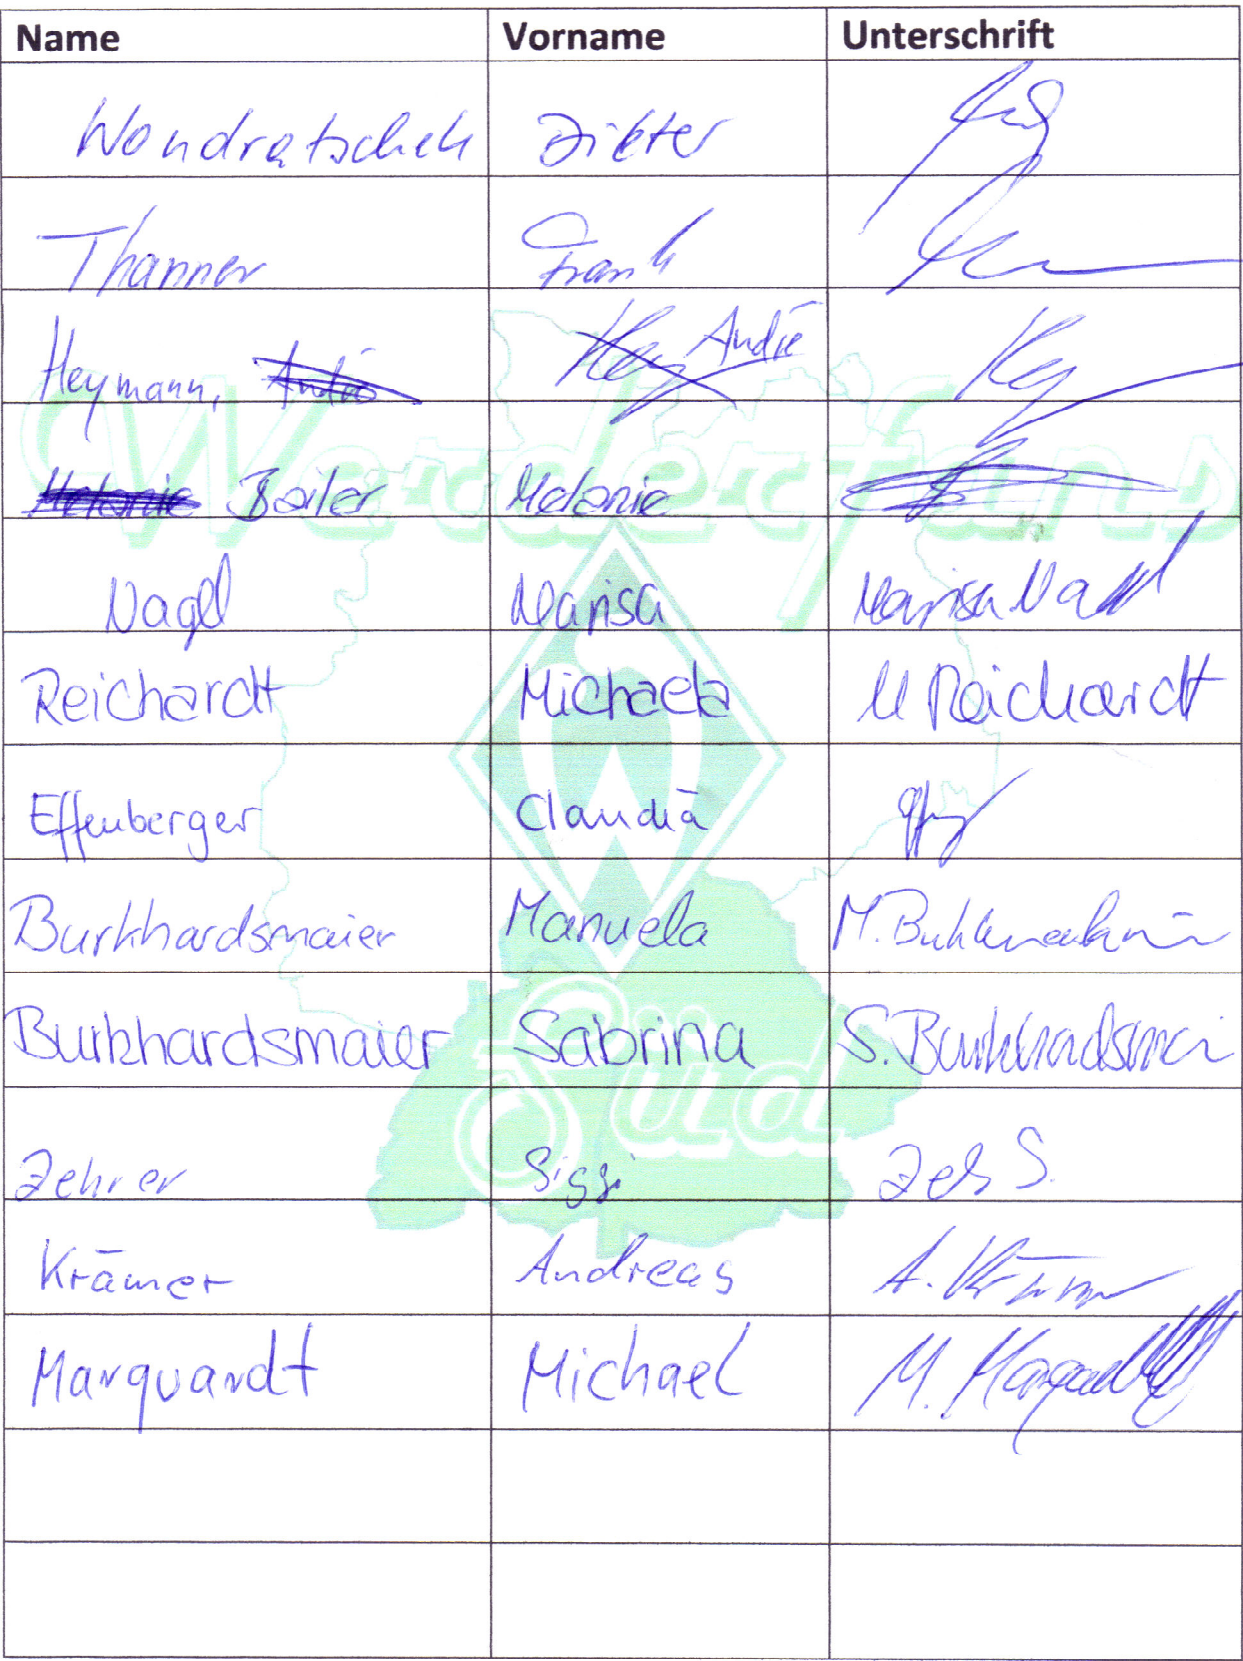 Name Vorname Unterschrift
Wondratschek Dieter
Thanner Frank
Heymann, André
Melanie Bailer Melanie
Nagel Marisa Marisa Nagel
Reichardt Michaela M Reichardt
Effenberger Claudia
Burkhardsmaier Manuela M. Burkhardsmaier
Burkhardsmaier Sabrina S. Burkhardsmaier
Zehrer Siggi Zeh S.
Krämer Andreas A. Krämer
Marquardt Michael M. Marquardt
Werderfans
Süd